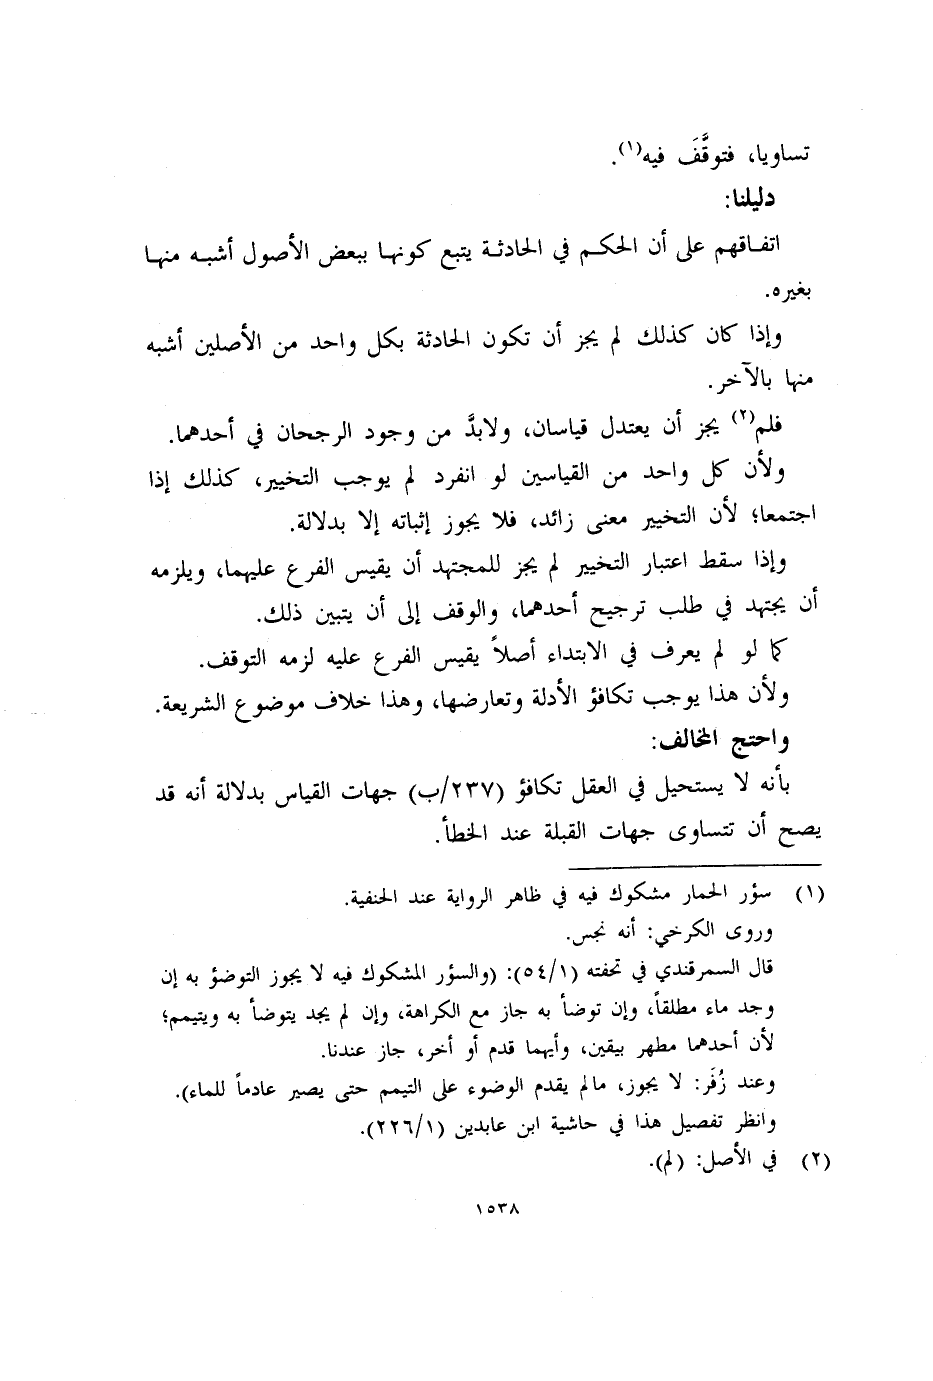 تساويا، فتوقَّفَ فيه(١).
دليلنا:
اتفاقهم على أن الحكم في الحادثة يتبع كونها ببعض الأصول أشبه منها
بغيره.
وإذا كان كذلك لم يجز أن تكون الحادثة بكل واحد من الأصلين أشبه
منها بالآخر.
فلم(٢) يجز أن يعتدل قياسان، ولابدَّ من وجود الرجحان في أحدهما.
ولأن كل واحد من القياسين لو انفرد لم يوجب التخيير، كذلك إذا
اجتمعا؛ لأن التخيير معنى زائد، فلا يجوز إثباته إلا بدلالة.
وإذا سقط اعتبار التخيير لم يجز للمجتهد أن يقيس الفرع عليهما، ويلزمه
أن يجتهد في طلب ترجيح أحدهما، والوقف إلى أن يتبين ذلك.
كما لو لم يعرف في الابتداء أصلاً يقيس الفرع عليه لزمه التوقف.
ولأن هذا يوجب تكافؤ الأدلة وتعارضها، وهذا خلاف موضوع الشريعة.
واحتج المخالف:
بأنه لا يستحيل في العقل تكافؤ (٢٣٧/ب) جهات القياس بدلالة أنه قد
يصح أن تتساوى جهات القبلة عند الخطأ.
(١) سؤر الحمار مشكوك فيه في ظاهر الرواية عند الحنفية.
وروى الكرخي: أنه نجس.
قال السمرقندي في تحفته (٥٤/١): (والسؤر المشكوك فيه لا يجوز التوضؤ به إن
وجد ماء مطلقاً، وإن توضأ به جاز مع الكراهة، وإن لم يجد يتوضأ به ويتيمم؛
لأن أحدهما مطهر بيقين، وأيهما قدم أو أخر، جاز عندنا.
وعند زُفَر: لا يجوز، مالم يقدم الوضوء على التيمم حتى يصير عادماً للماء).
وانظر تفصيل هذا في حاشية ابن عابدين (٢٢٦/١).
(٢) في الأصل: (لم).
١٥٣٨